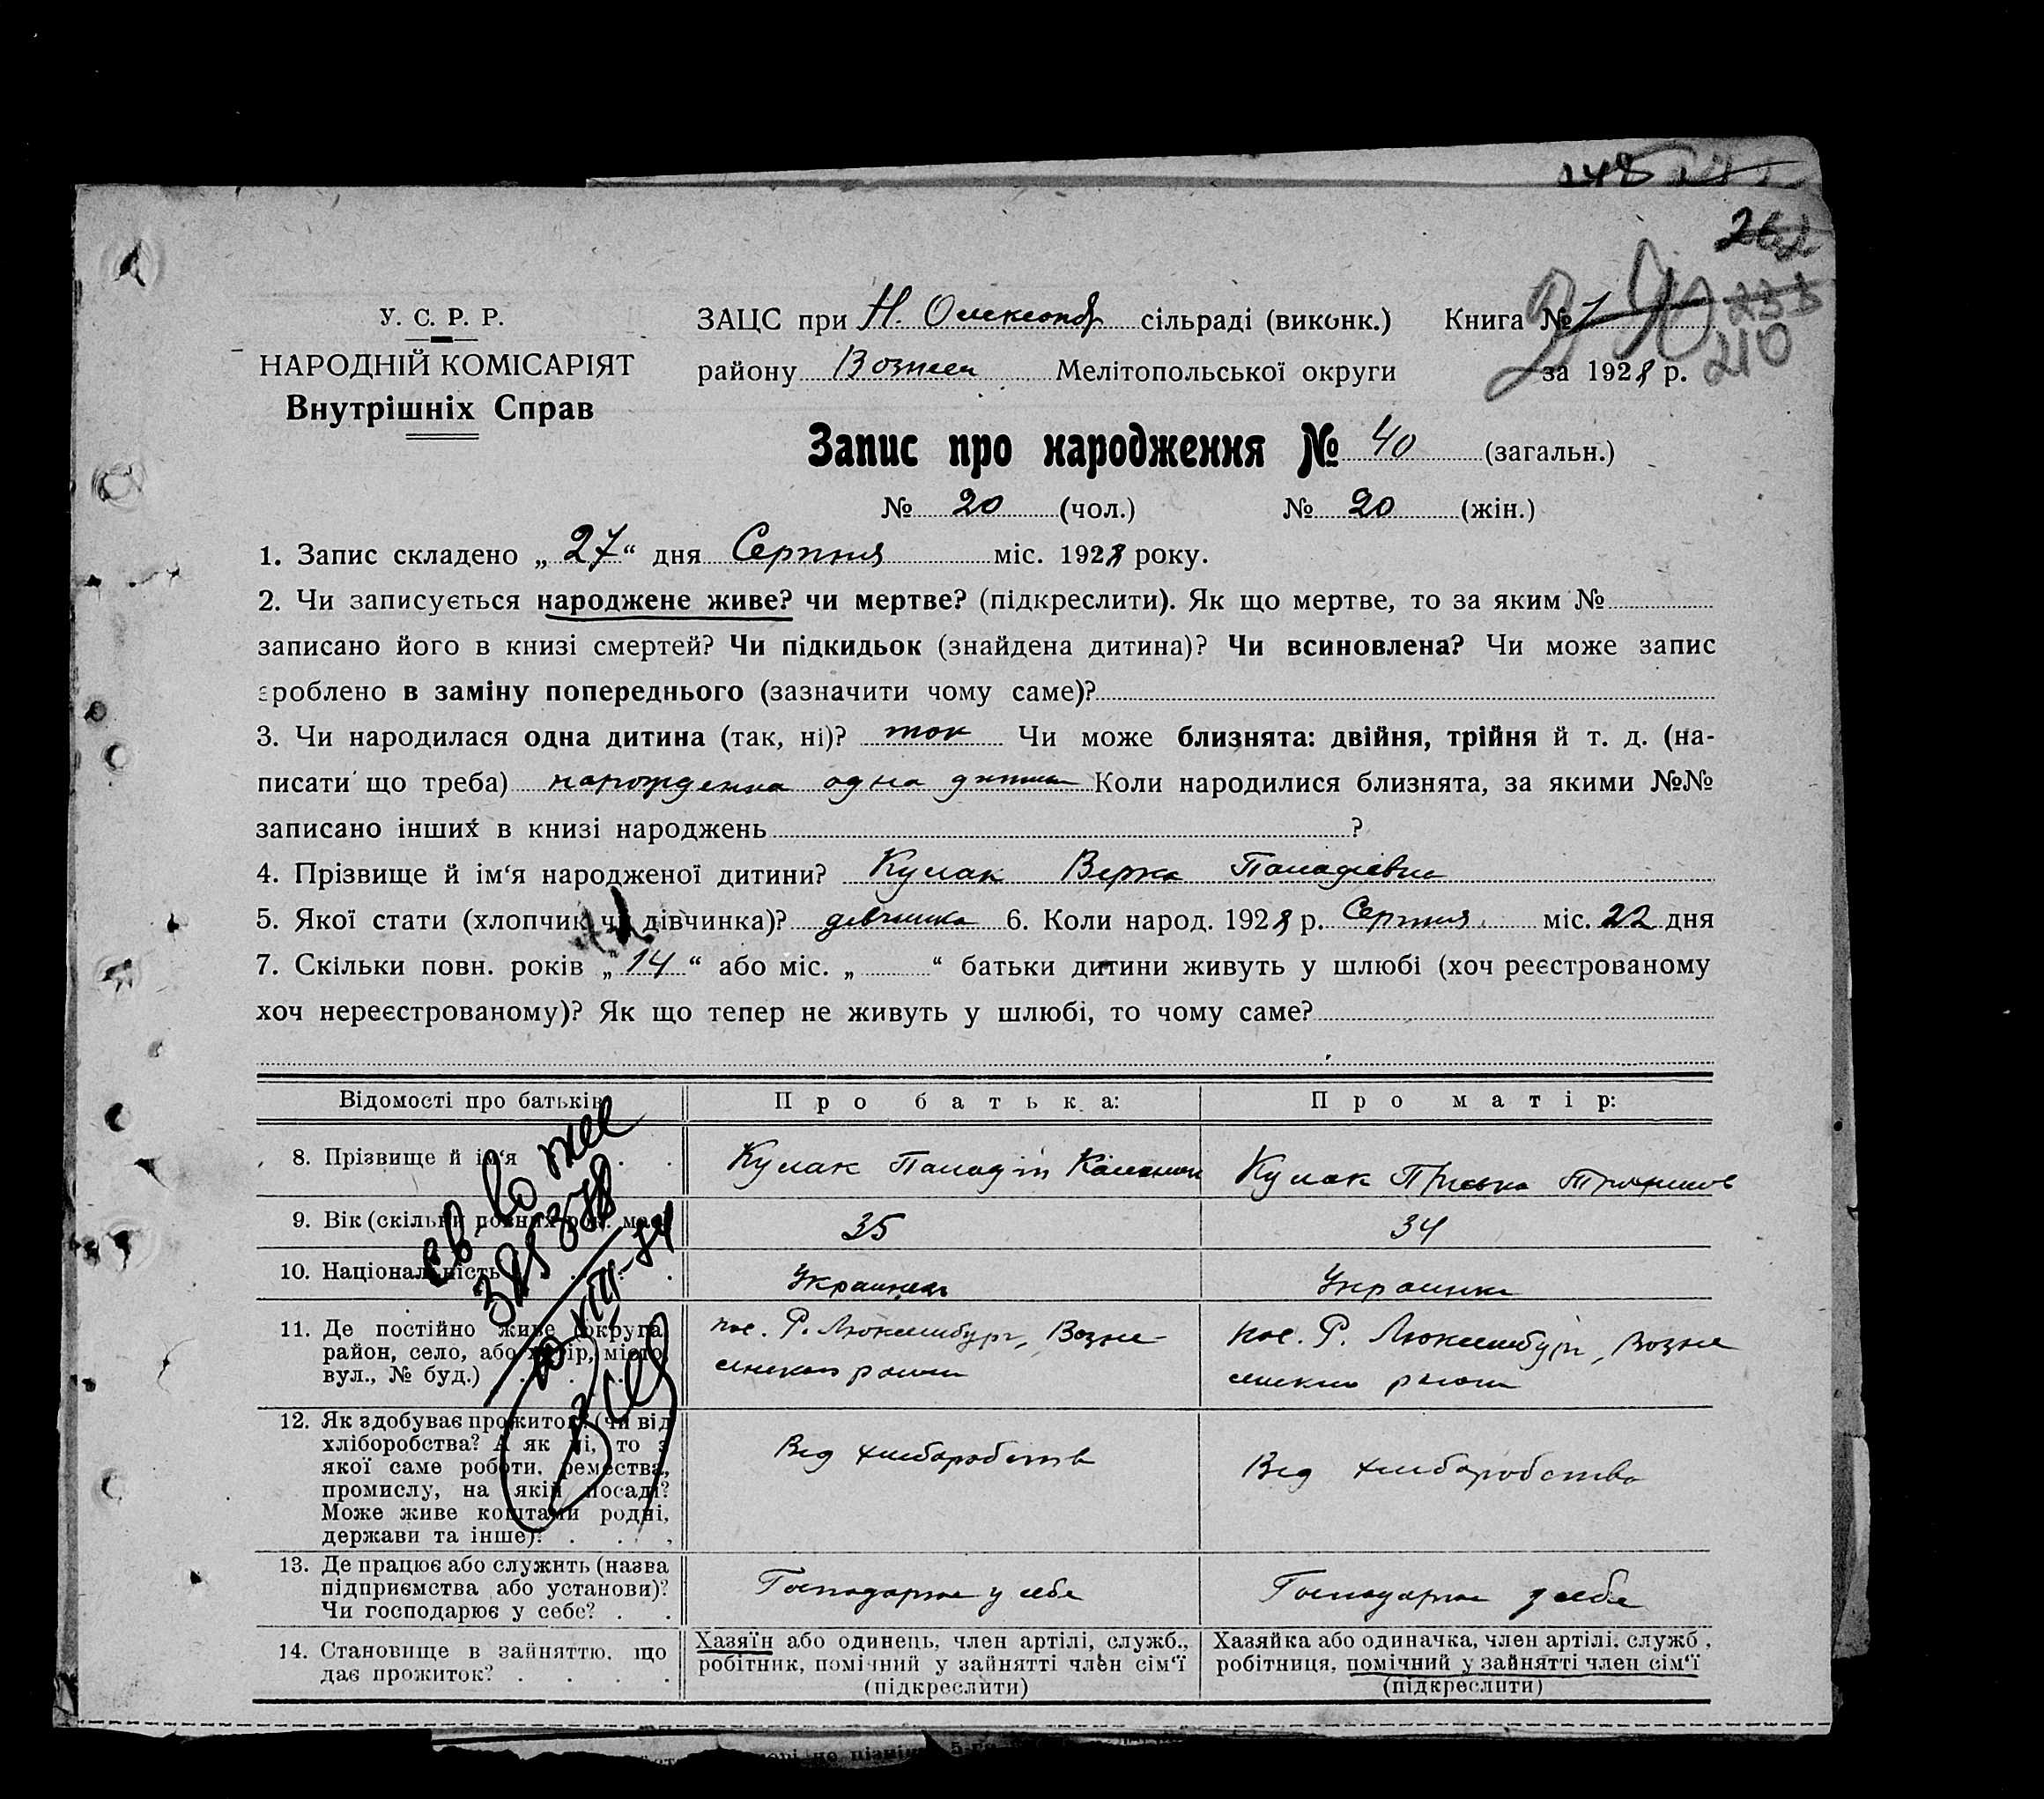 248
262
У. С. Р. Р.
НАРОДНІЙ КОМІСАРІЯТ
Внутрішніх Справ
ЗАЦС при Н. Олександр сільраді (виконк.) Книга № 1
233
району Вознесен Мелітопольської округи за 1928 р.
210
Запис про народження № 40 (загальн.)
№ 20 (чол.) № 20 (жін.)
1. Запис складено „ 27 “ дня Серпня міс. 1928 року.
2. Чи записується народжене живе? чи мертве? (підкреслити). Як що мертве, то за яким №
записано його в книзі смертей? Чи підкидьок (знайдена дитина)? Чи всиновлена? Чи може запис
зроблено в заміну попереднього (зазначити чому саме)?
3. Чи народилася одна дитина (так, ні)? так Чи може близнята: двійня, трійня й т. д. (на-
писати що треба) народженна одна дитина Коли народилися близнята, за якими №№
записано інших в книзі народжень ?
4. Прізвище й ім‘я народженої дитини? Кулак Верка Паладієвна
5. Якої стати (хлопчик чи дівчинка)? дівчинка 6. Коли народ. 1928 р. Серпня міс. 22 дня
7. Скільки повн. років „ 14 “ або міс. „ “ батьки дитини живуть у шлюбі (хоч реєстрованому
хоч нереєстрованому)? Як що тепер не живуть у шлюбі, то чому саме?
Відомості про батьків Про батька: Про матір:
8. Прізвище й ім‘я Кулак Паладій Кулак Приська
9. Вік (скільки повних рок. має) 35 34
10. Національність Украинець Украинка
11. Де постійно живе (округа, район, село, або хутір, місто, вул., № буд.)
пос. Р. Люксембург, Возне-
сенского району
пос. Р. Люксембург, Возне
сенского району
12. Як здобуває прожиток (чи від
хліборобства? А як ні, то з
якої саме роботи, ремества,
промислу, на якій посаді?
Може живе коштами родні,
держави та інше)?
Від хліборобств
Від хліборобства
13. Де працює або служить (назва
підприємства або установи)?
Чи господарює у себе?
Господарює у себе
Господарює у себе
14. Становище в зайняттю, що
дає прожиток?
Хазяїн або одинець, член артілі, служб.,
робітник, помічний у зайнятті член сім‘ї
(підкреслити)
Хазяйка або одиначка, член артілі, служб.,
робітниця, помічний у зайнятті член сім‘ї
(підкреслити)